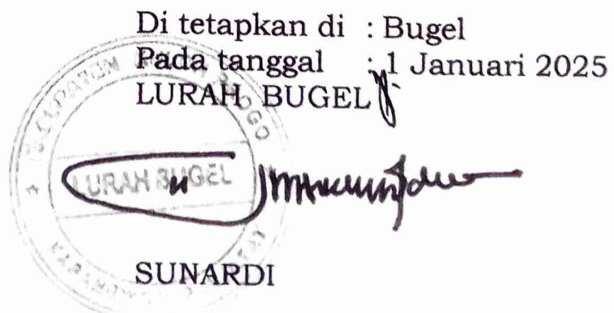 Di tetapkan di : Bugel
Pada tanggal : 1 Januari 2025
LURAH BUGEL
LURAH BUGEL
SUNARDI